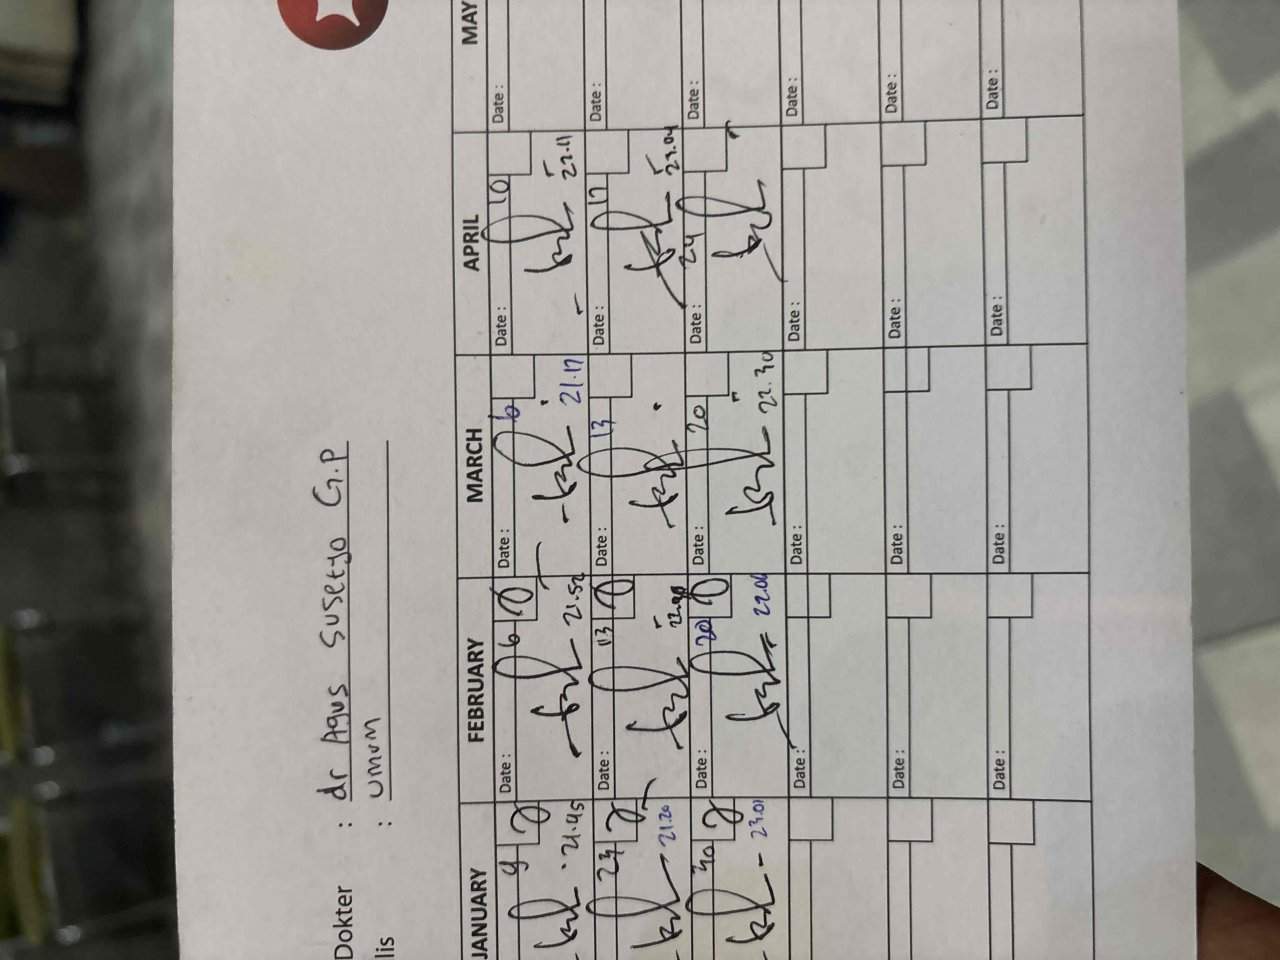 Dokter : dr Agus Susetyo G.P
lis : umum
JANUARY FEBRUARY MARCH APRIL MAY
9 Date : 6 Date : 6 Date : 10 Date :
21.45 21.52 21.17 22.11
23 Date : 13 Date : 13 Date : 17 Date :
21.20 23.04
30 Date : 20 Date : 20 Date : 24 Date :
23.01 22.06 22.30
Date : Date : Date : Date :
Date : Date : Date : Date :
Date : Date : Date : Date :